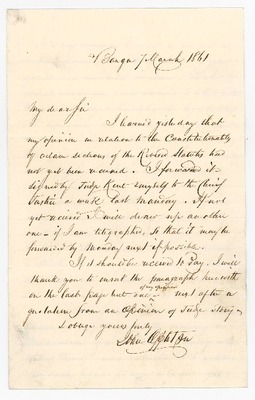 Bangor 7 March 1861
My dear Sir
I learned yesterday that
my opinion in relation to the Constitutionality
of certain sections of the Revised Statutes has
not yet been received. I forwarded it
signed by Judge Kent & myself to the Chief
Justice a week last Monday. If not
yet received I will draw up an other
one - if I am telegraphed, so that it may be
forwarded by Monday next if possible.
If it should be received to day, I will
thank you to insert the paragraph herewith
of my opinion
on the last page but one - next after a
quotation from an opinion of Judge Story &
oblige yours truly
John Appleton